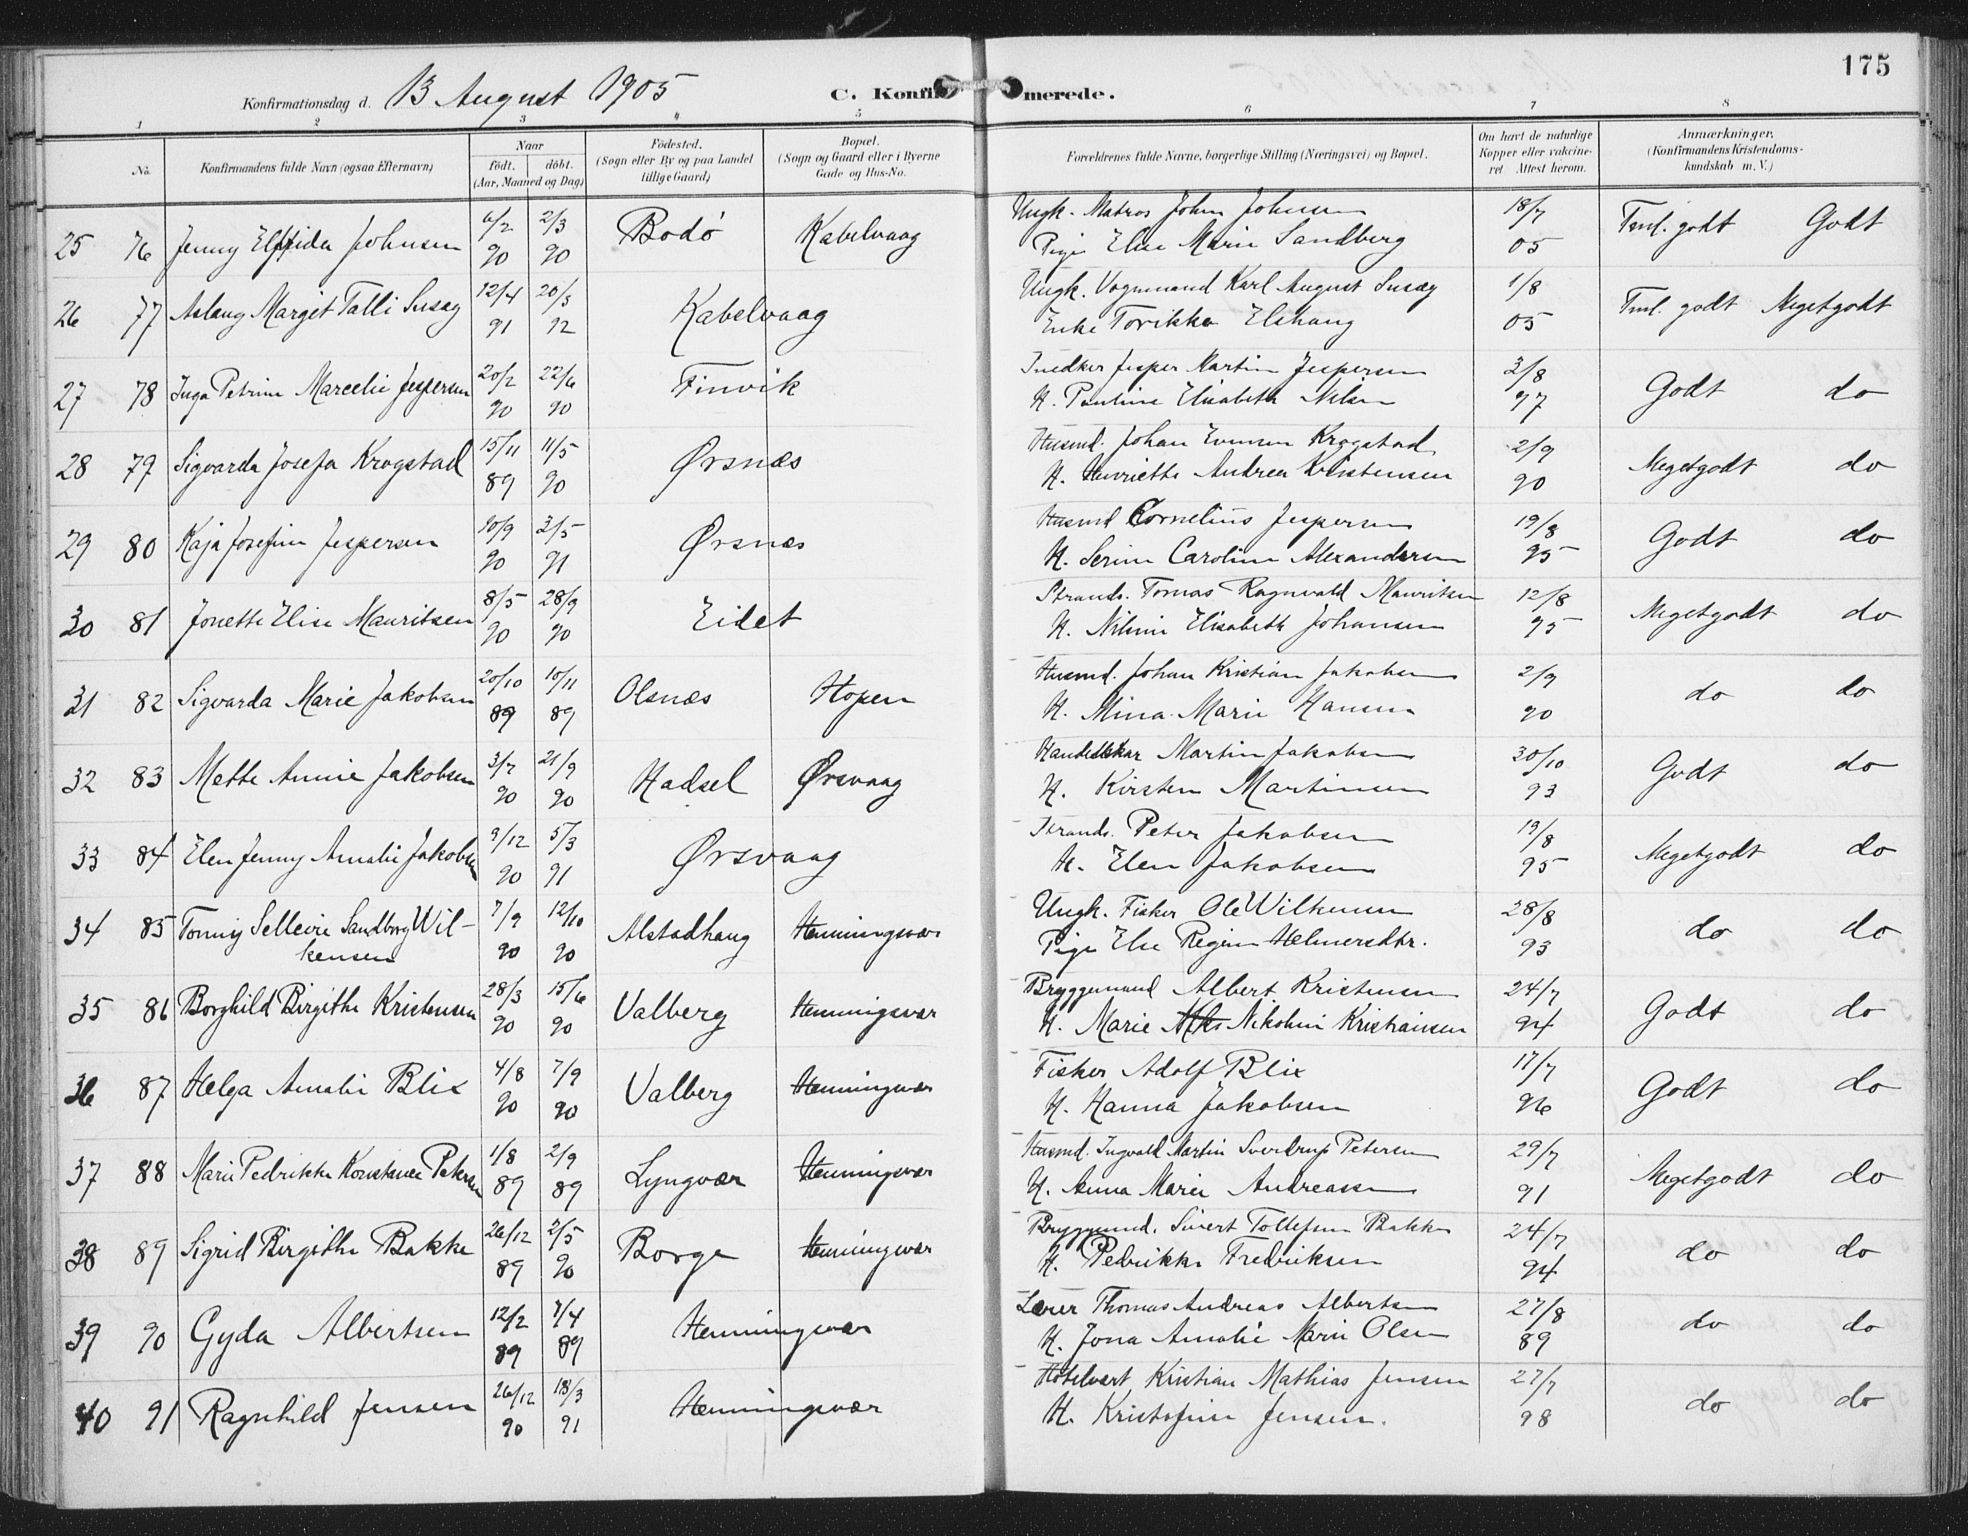 175
Konfirmationsdag d. 13 August 1905 C. Konfirmerede.
1 2 3 4 5 6 7 8
No. Konfirmandens fulde Navn (ogsaa Efternavn) Naar født. døbt. (Aar, Maaned og Dag) Fødested. (Sogn eller By og paa Landet tillige Gaard) Bopæl. (Sogn og Gaard eller i Byerne Gade og Hus-No. Forældrenes fulde Navne, borgerlige Stilling (Næringsvei) og Bopæl. Om havt de naturlige Kopper eller vakcineret Attest herom. Anmærkninger. (Konfirmandens Kristendomskundskab m. V.)
25 76 Jenny Elfrida Johnsen 6/2 90 2/3 90 Bodø Kabelvaag Ungk. Matros John Johnsen 18/7 05 Tml. godt Godt
Pige Else Marie Sandberg
26 77 Aslaug Margit Talli Susag 12/4 91 20/3 92 Kabelvaag Ungk. Vognmand Karl August Susag 1/8 05 Tml. godt Megetgodt
Enke Torikke Elshaug
27 78 Inga Petrine Marcelie Jespersen 20/2 90 22/6 90 Finvik Snedker Jesper Martin Jespersen 3/8 97 Godt do
H. Pauline Elisabeth Nilsen
28 79 Sigvarda Josefa Krogstad 15/11 89 11/5 90 Ørsnæs Husmd. Johan Evensen Krogstad 2/9 90 Megetgodt do
H. Henriette Andrea Kristensen
29 80 Kaja Josefine Jespersen 10/9 90 3/5 91 Ørsnæs Husmd Cornelius Jespersen 19/8 95 Godt do
H. Serine Caroline Alexandersen
30 81 Jonette Elise Mauritsen 8/5 90 28/9 90 Eidet Strands. Tomas Ragnvald Mauritsen 12/8 95 Megetgodt do
H. Nilsine Elisabeth Johansen
31 82 Sigvarda Marie Jakobsen 20/10 89 10/11 89 Olsnæs Hopen Husmd. Johan Kristian Jakobsen 2/9 90 do do
H. Mina Marie Hansen
32 83 Mette Annie Jakobsen 3/7 90 21/9 90 Hadsel Ørsvaag Martin Jakobsen 30/10 93 Godt do
H. Kirsten Martinsen
33 84 Elen Jenny Amalie Jakobsen 9/12 90 5/3 91 Ørsvaag Strands. Peter Jakobsen 19/8 95 Megetgodt do
H. Elen Jakobsen
34 85 Tonny Sellevie Sandborg Wilkensen 7/9 90 12/10 90 Alstadhaug Henningsvær Ungk. Fisker Ole Wilkensen 28/8 93 do do
Pige Else Regine Helmersdtr.
35 86 Borghild Birgithe Kristensen 28/3 90 15/6 90 Valberg Henningsvær Bryggemand Albert Kristensen 24/7 94 Godt do
H. Marie Nikoline Kristiansen
36 87 Helga Amalie Blix 4/8 90 7/9 90 Valberg Henningsvær Fisker Adolf Blix 17/7 96 Godt do
H. Hanna Jakobsen
37 88 Marie Pedrikke Konstance Petersen 1/8 89 2/9 89 Lyngvær Henningsvær Husmd. Ingvald Martin Sverdrup Petersen 29/7 91 Megetgodt do
H. Anna Marie Andreassen
38 89 Sigrid Birgithe Bakke 26/12 89 2/5 90 Borge Henningsvær Bryggemd. Sivert Tollefsen Bakke 24/7 94 do do
H. Pedrikke Fredriksen
39 90 Gyda Albertsen 12/2 89 7/4 89 Henningsvær Lærer Thomas Andreas Albertsen 27/8 89 do do
H. Jona Amalie Marie Olsen
40 91 Ragnhild Jensen 26/12 90 18/3 91 Henningsvær Hotelvært Kristian Mathias Jensen 27/7 98 do do
H. Kristofine Jensen.